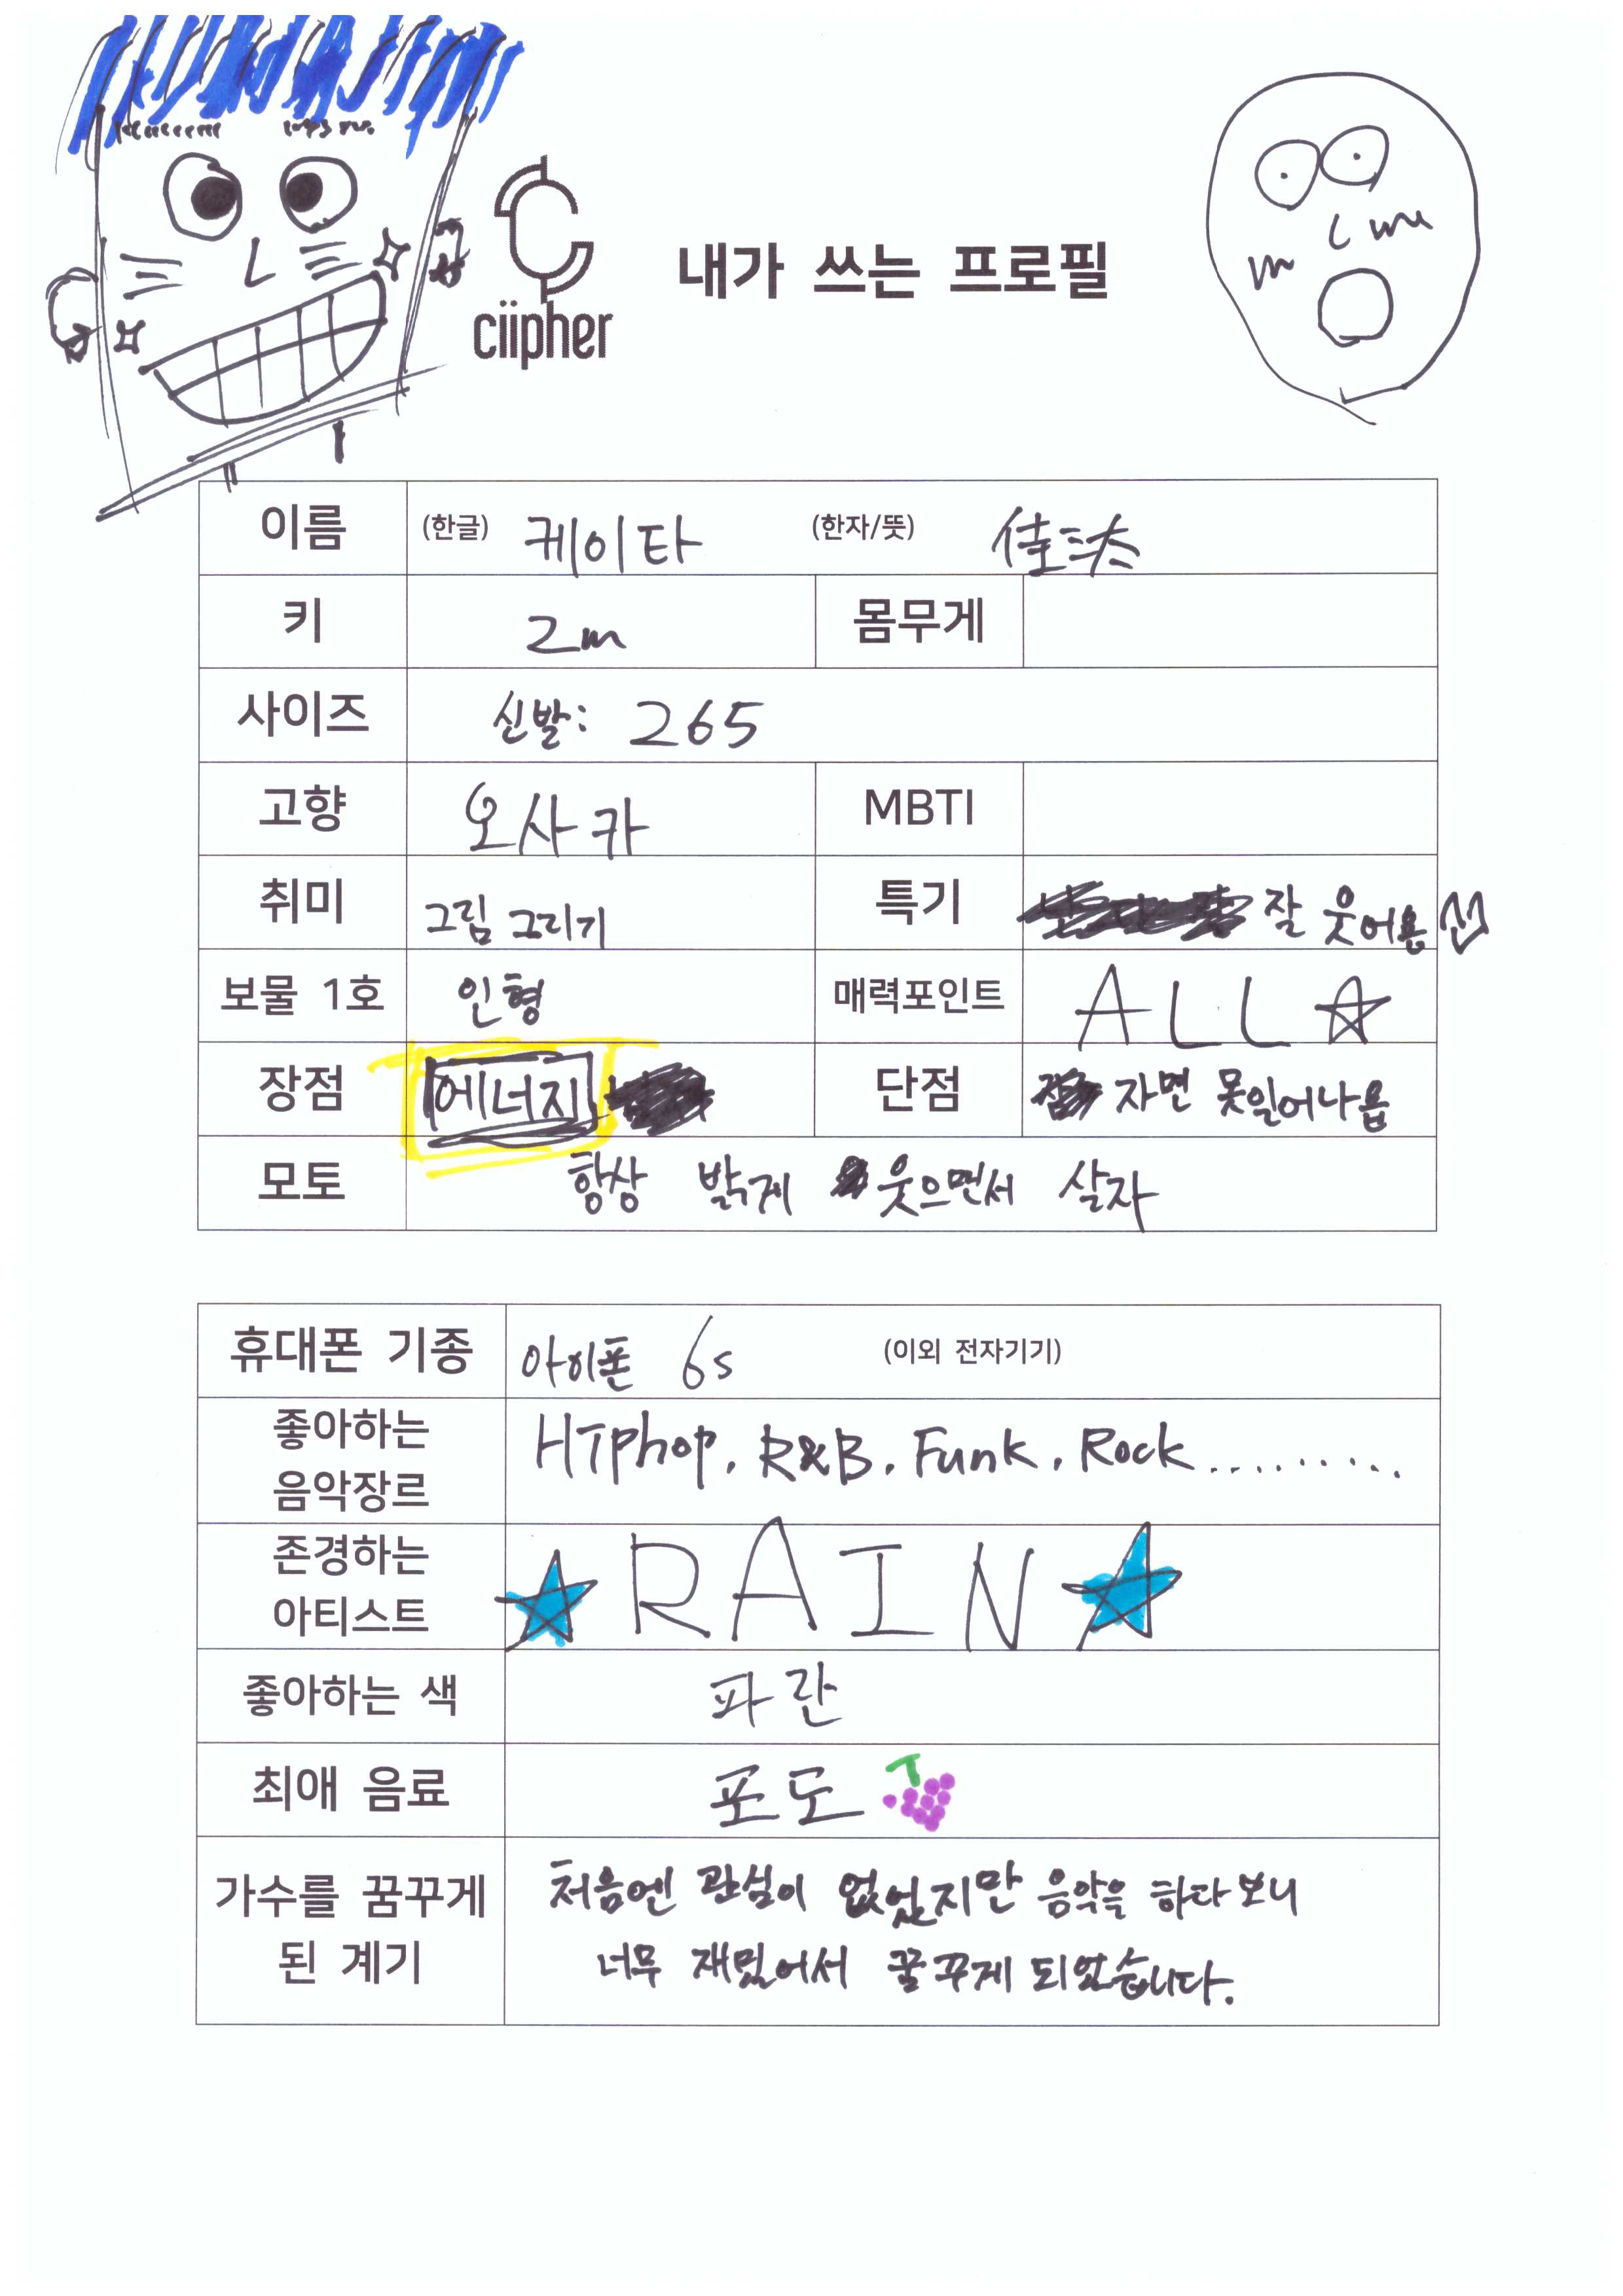 ciipher
내가 쓰는 프로필
이름 (한글) 케이타 (한자/뜻) 佳汰
키 2m 몸무게
사이즈 신발: 265
고향 오사카 MBTI
취미 그림 그리기 특기 잘 웃어욤
보물 1호 인형 매력포인트 ALL
장점 에너지 단점 자면 못일어나욥
모토 항상 밝게 웃으면서 살자
휴대폰 기종 아이폰 6s (이외 전자기기)
좋아하는
음악장르
HIphop, R&B, Funk, Rock.........
존경하는
아티스트
RAIN
좋아하는 색 파란
최애 음료 포도
가수를 꿈꾸게
된 계기
처음엔 관심이 없었지만 음악을 하다보니
너무 재밌어서 꿈꾸게 되었습니다.